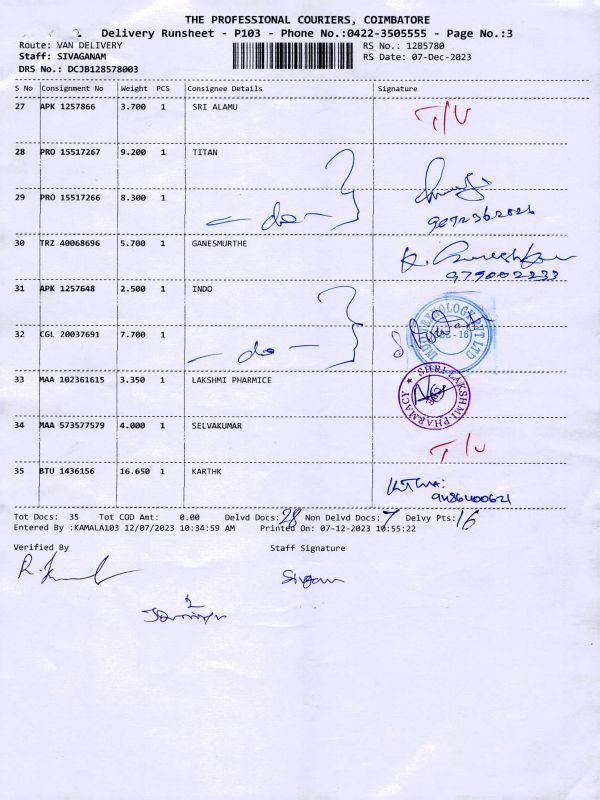 THE PROFESSIONAL COURIERS, COIMBATORE
Delivery Runsheet - P103 - Phone No.:0422-3505555 - Page No.:3
Route: VAN DELIVERY RS No.: 1285780
Staff: SIVAGANAM RS Date: 07-Dec-2023
DRS No.: DCJB128578003
S No Consignment No Weight PCS Consignee Details Signature
27 APK 1257866 3.700 1 SRI ALAMU T/U
28 PRO 15517267 9.200 1 TITAN
29 PRO 15517266 8.300 1
- do -
30 TRZ 40068696 5.700 1 GANESMURTHE
979002233
31 APK 1257648 2.500 1 INDO
32 CGL 20037691 7.700 1
- do -
33 MAA 102361615 3.350 1 LAKSHMI PHARMICE SHRI LAKSHMI PHARMACY
34 MAA 573577579 4.000 1 SELVAKUMAR T/U
35 BTU 1436156 16.650 1 KARTHK
9486400621
Tot Docs: 35 Tot COD Amt: 0.00 Delvd Docs: 28 Non Delvd Docs: 7 Delvy Pts: 16
Entered By :KAMALA103 12/07/2023 10:34:59 AM Printed On: 07-12-2023 10:55:22
Verified By Staff Signature